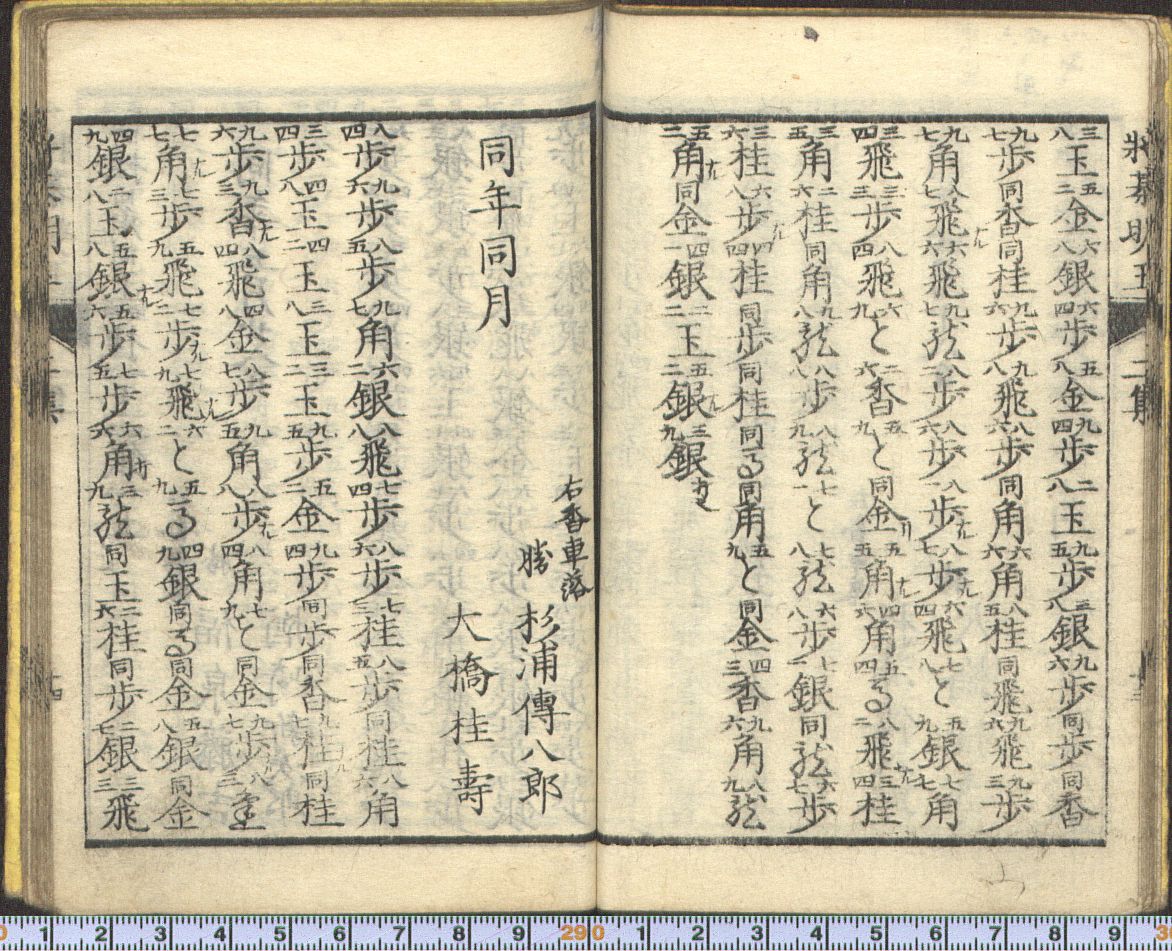 将棊明玉 二集
三八玉五二金六八銀六四歩五八金九四歩二八玉九五歩三八銀九六歩同歩同香
九七歩同香同桂九六歩九八飛八六歩同角六六角八五桂同飛九六飛九三歩
九七角八七飛ナル六六飛九七龍八二歩八六歩八一歩ナル八七歩ナル六四飛七八と五九銀七七角
三四飛三三歩八四飛六九と二六香五九と同金五五角四六角五四る八二飛三四桂
三五角二六桂同角八八龍八八歩八九龍七一と七八龍六八歩七一銀同龍六七歩
三六桂六八歩ナル四四桂同歩同桂同る同角五九と同金四三香九六角八九龍
五二角ナル同金四一銀二二玉五二銀ナル三九銀
同年同月
右香車落
勝 杉浦傳八郎
大橋桂壽
八四歩九六歩八五歩九七角六二銀八八飛七四歩八六歩七三桂八五歩同桂八六角
三四歩四八玉四二玉三八玉三二玉九五歩五二金九四歩同歩同香九七桂ナル同桂
九六歩九三香ナル八四飛四八金八七歩九五角八八歩ナル八四角七九と同金九七歩ナル
七七角ナル七三歩五九飛七二歩ナル七九飛ナル六二と五九る四九銀同る同金五八銀同金
四九銀二八玉五八銀五六歩七五歩六六角打三九龍同玉二六桂同歩二七銀二三飛